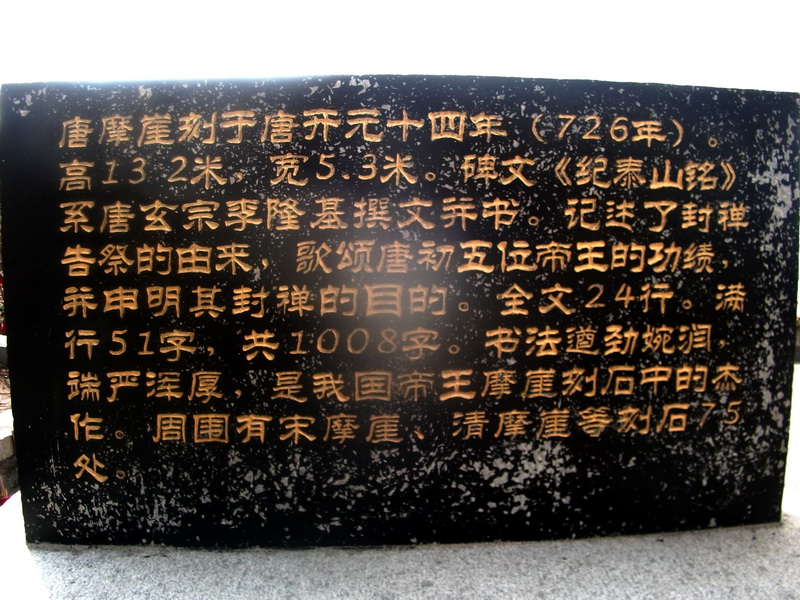 唐摩崖刻于唐开元十四年（726年）。
高13.2米，宽5.3米。碑文《纪泰山铭》
系唐玄宗李隆基撰文并书。记述了封禅
告祭的由来，歌颂唐初五位帝王的功绩，
并申明其封禅的目的。全文24行。满
行51字，共1008字。书法遒劲婉润，
端严浑厚，是我国帝王摩崖刻石中的杰
作。周围有宋摩崖、清摩崖等刻石75
处。